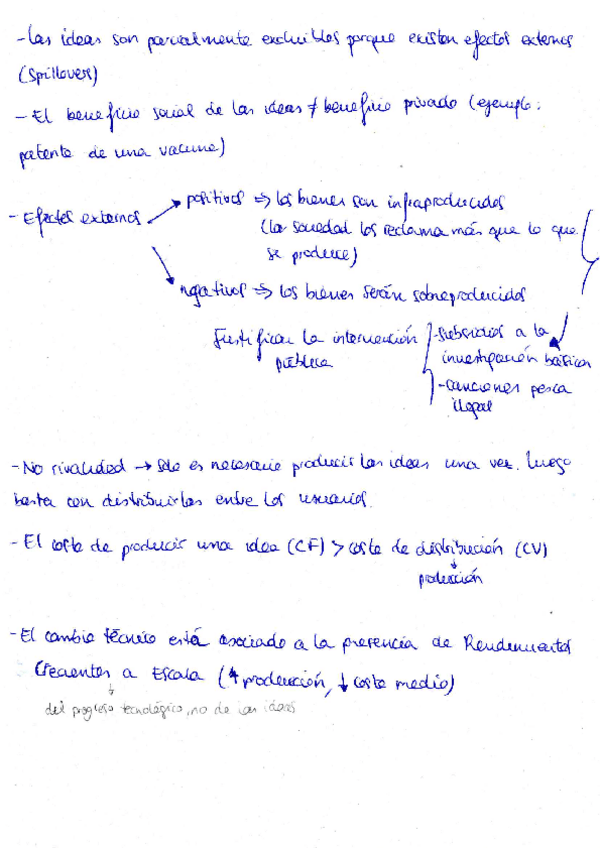 - Las ideas son parcialmente excluibles porque existen efectos externos
(Spillover)
- El beneficio social de las ideas ≠ beneficio privado (ejemplo:
patente de una vacuna)
- Efectos externos
positivos ⇒ los bienes son infraproducidos
(la sociedad los reclama más que lo que
se produce)
negativos ⇒ los bienes serán sobreproducidos
Justifican la intervención
pública
- subsidios a la
investigación básica
- sanciones pesca
ilegal
- No rivalidad → Solo es necesario producir las ideas una vez. Luego
basta con distribuirlas entre los usuarios.
- El coste de producir una idea (CF) > coste de distribución (CV)
↓
producción
- El cambio técnico está asociado a la presencia de Rendimientos
Crecientes a Escala (↑ producción, ↓ coste medio)
↓
del progreso tecnológico, no de las ideas